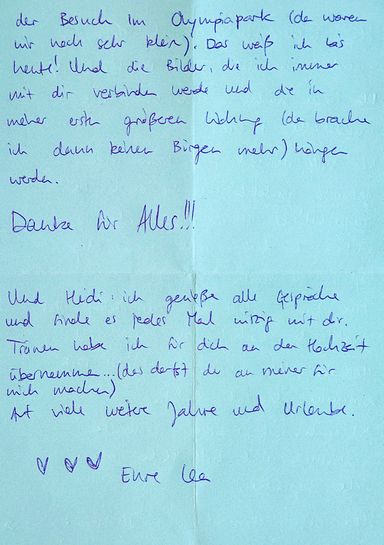 der Besuch im Olympiapark (da waren
wir noch sehr klein). Das weiß ich bis
heute! Und die Bilder, die ich immer
mit dir verbinden werde und die in
meiner ersten größeren Wohnung (da brauche
ich dann keinen Bürgen mehr) hängen
werden.
Danke für Alles!!!
Und Heidi: ich genieße alle Gespräche
und finde es jedes Mal witzig mit dir.
Tränen habe ich für dich an der Hochzeit
übernommen... (das darfst du an meiner für
mich machen)
Auf viele weitere Jahre und Urlaube.
Eure Lea